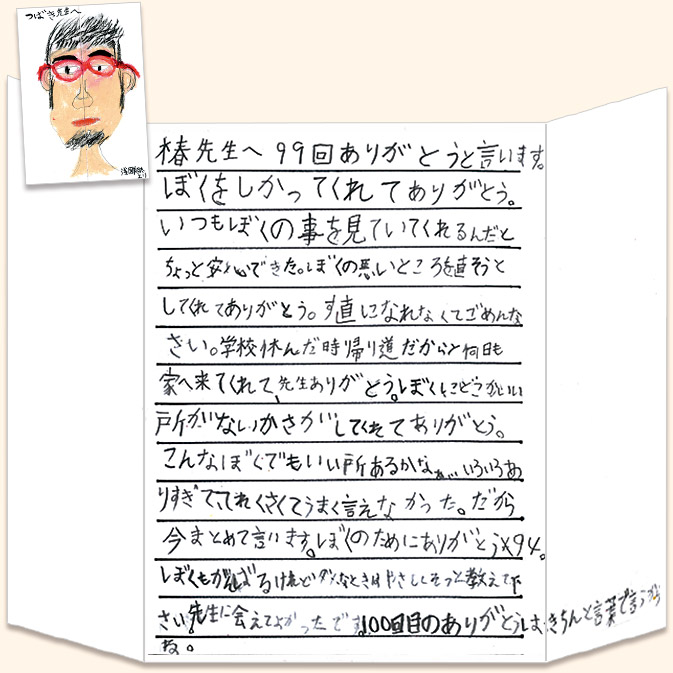 つばき先生へ
椿先生へ 99回ありがとうと言います。
ぼくをしかってくれてありがとう。
いつもぼくの事を見ていてくれるんだと
ちょっと安心できた。ぼくの悪いところを直そうと
してくれてありがとう。す直になれなくてごめんな
さい。学校休んだ時帰り道だからと何日も
家へ来てくれて、先生ありがとう。ぼくにどうかいい
所がないかさがしてくれてありがとう。
こんなぼくでもいい所あるかなぁ、、いろいろあ
りすぎて、てれくさくてうまく言えなかった。だから
今まとめて言います。ぼくのためにありがとう×94。
ぼくもがんばるけれどダメなときはやさしくそっと教えて下
さい。先生に会えてよかったです。100回目のありがとうはきちんと言葉で言うから
ね。